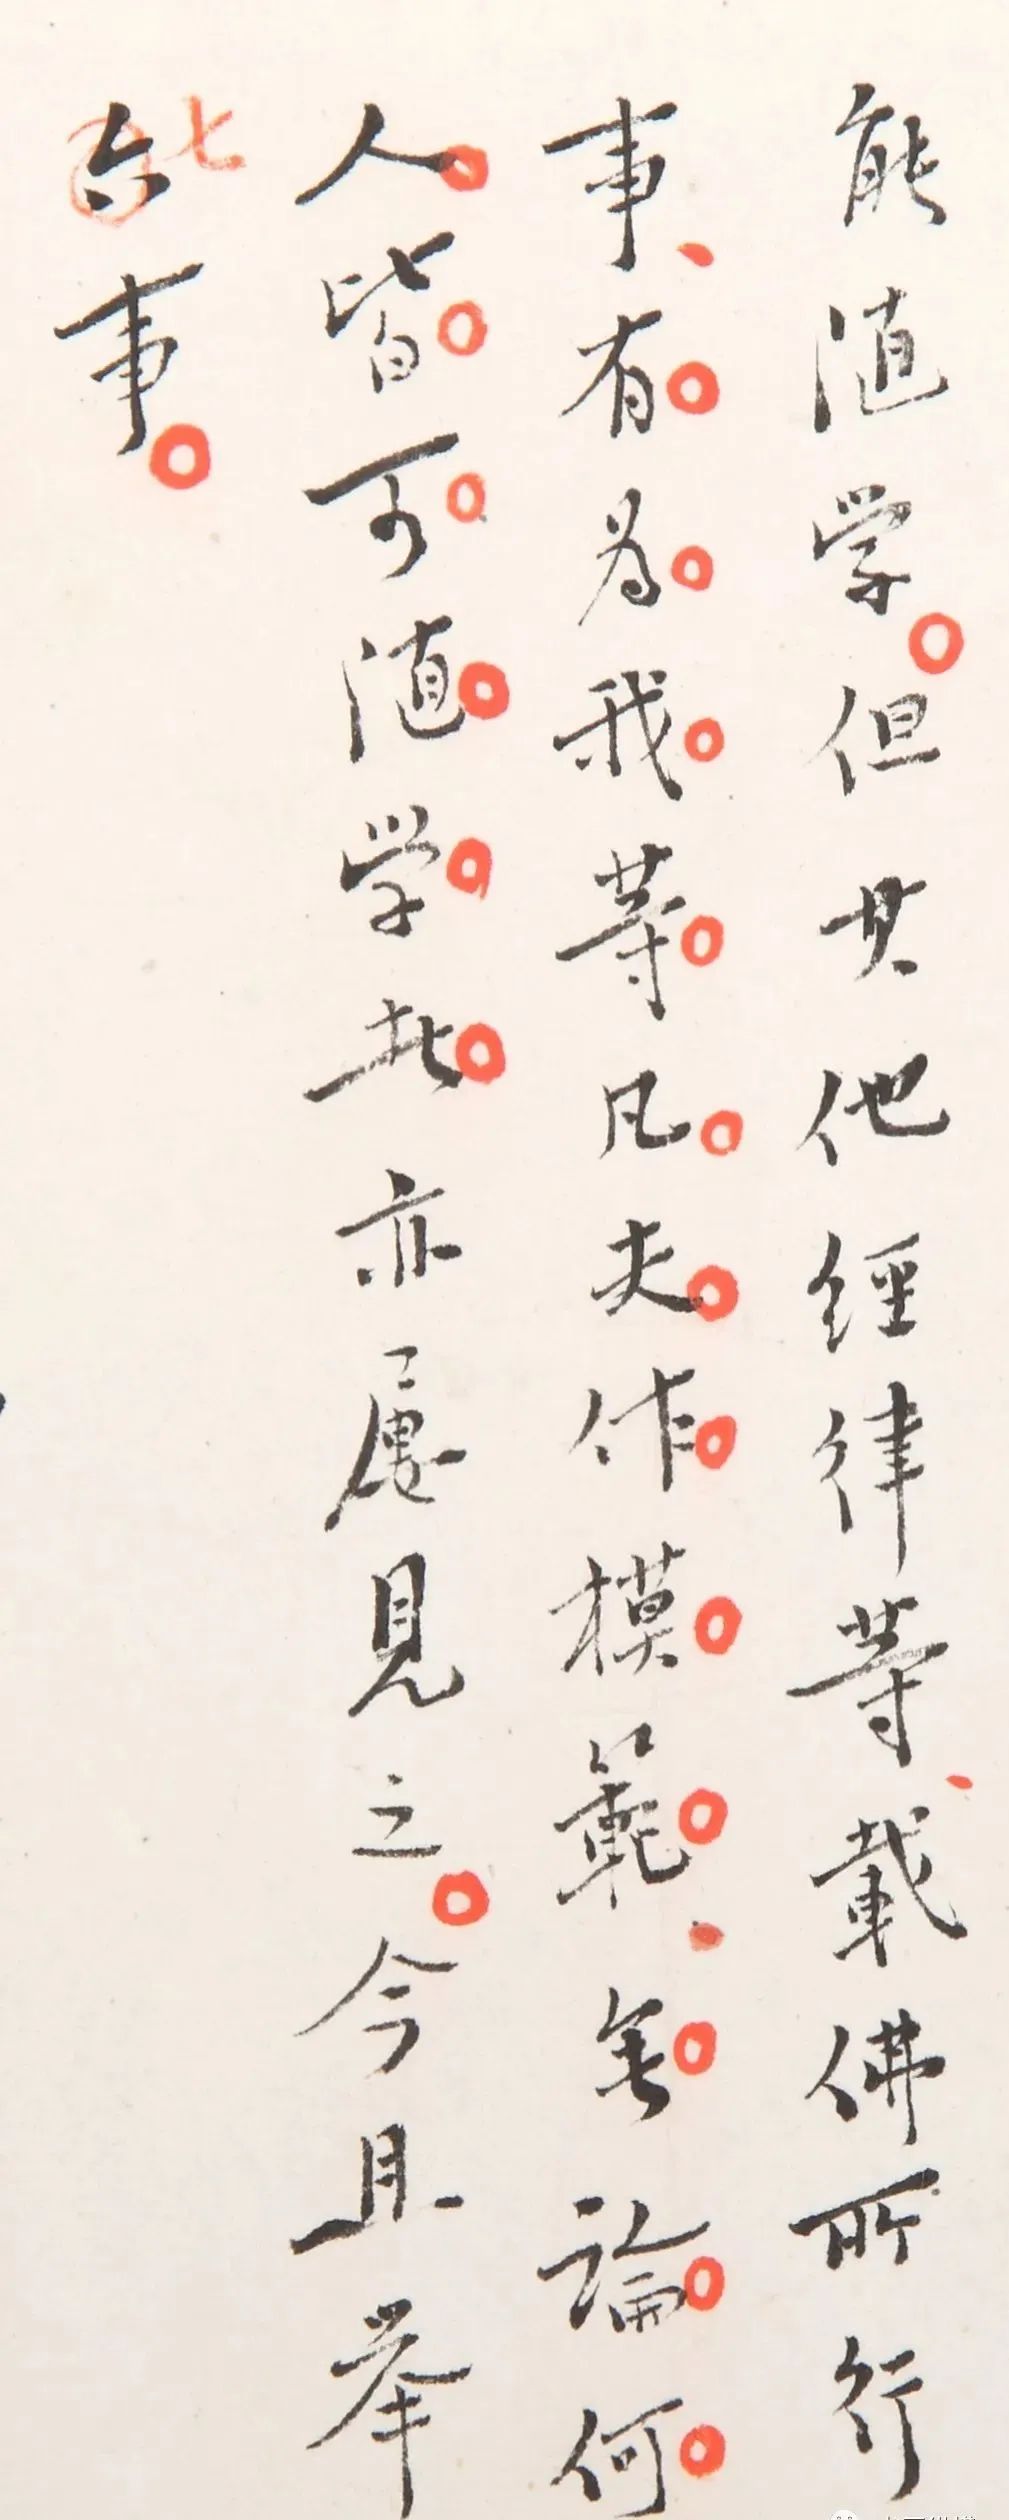 能随学。但其他經律等、載佛所行
事、有为我等凡夫作模範、無論何
人皆可随学者亦屡見之。今且举
七事。